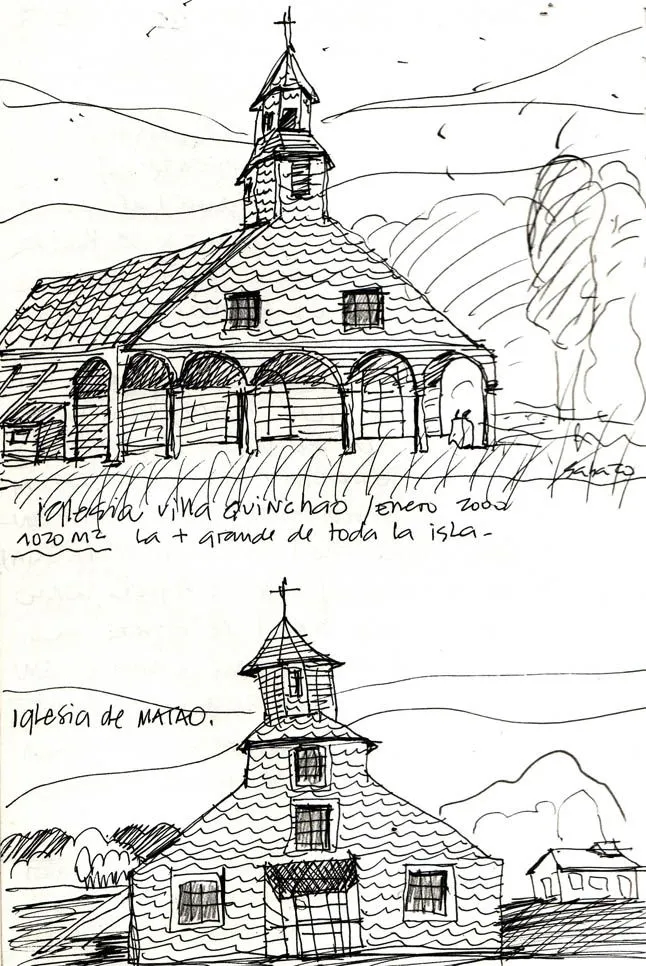 iglesia villa Quinchao / Enero 2000
1020 M2 La + grande de toda la isla-
Iglesia de MATAO.